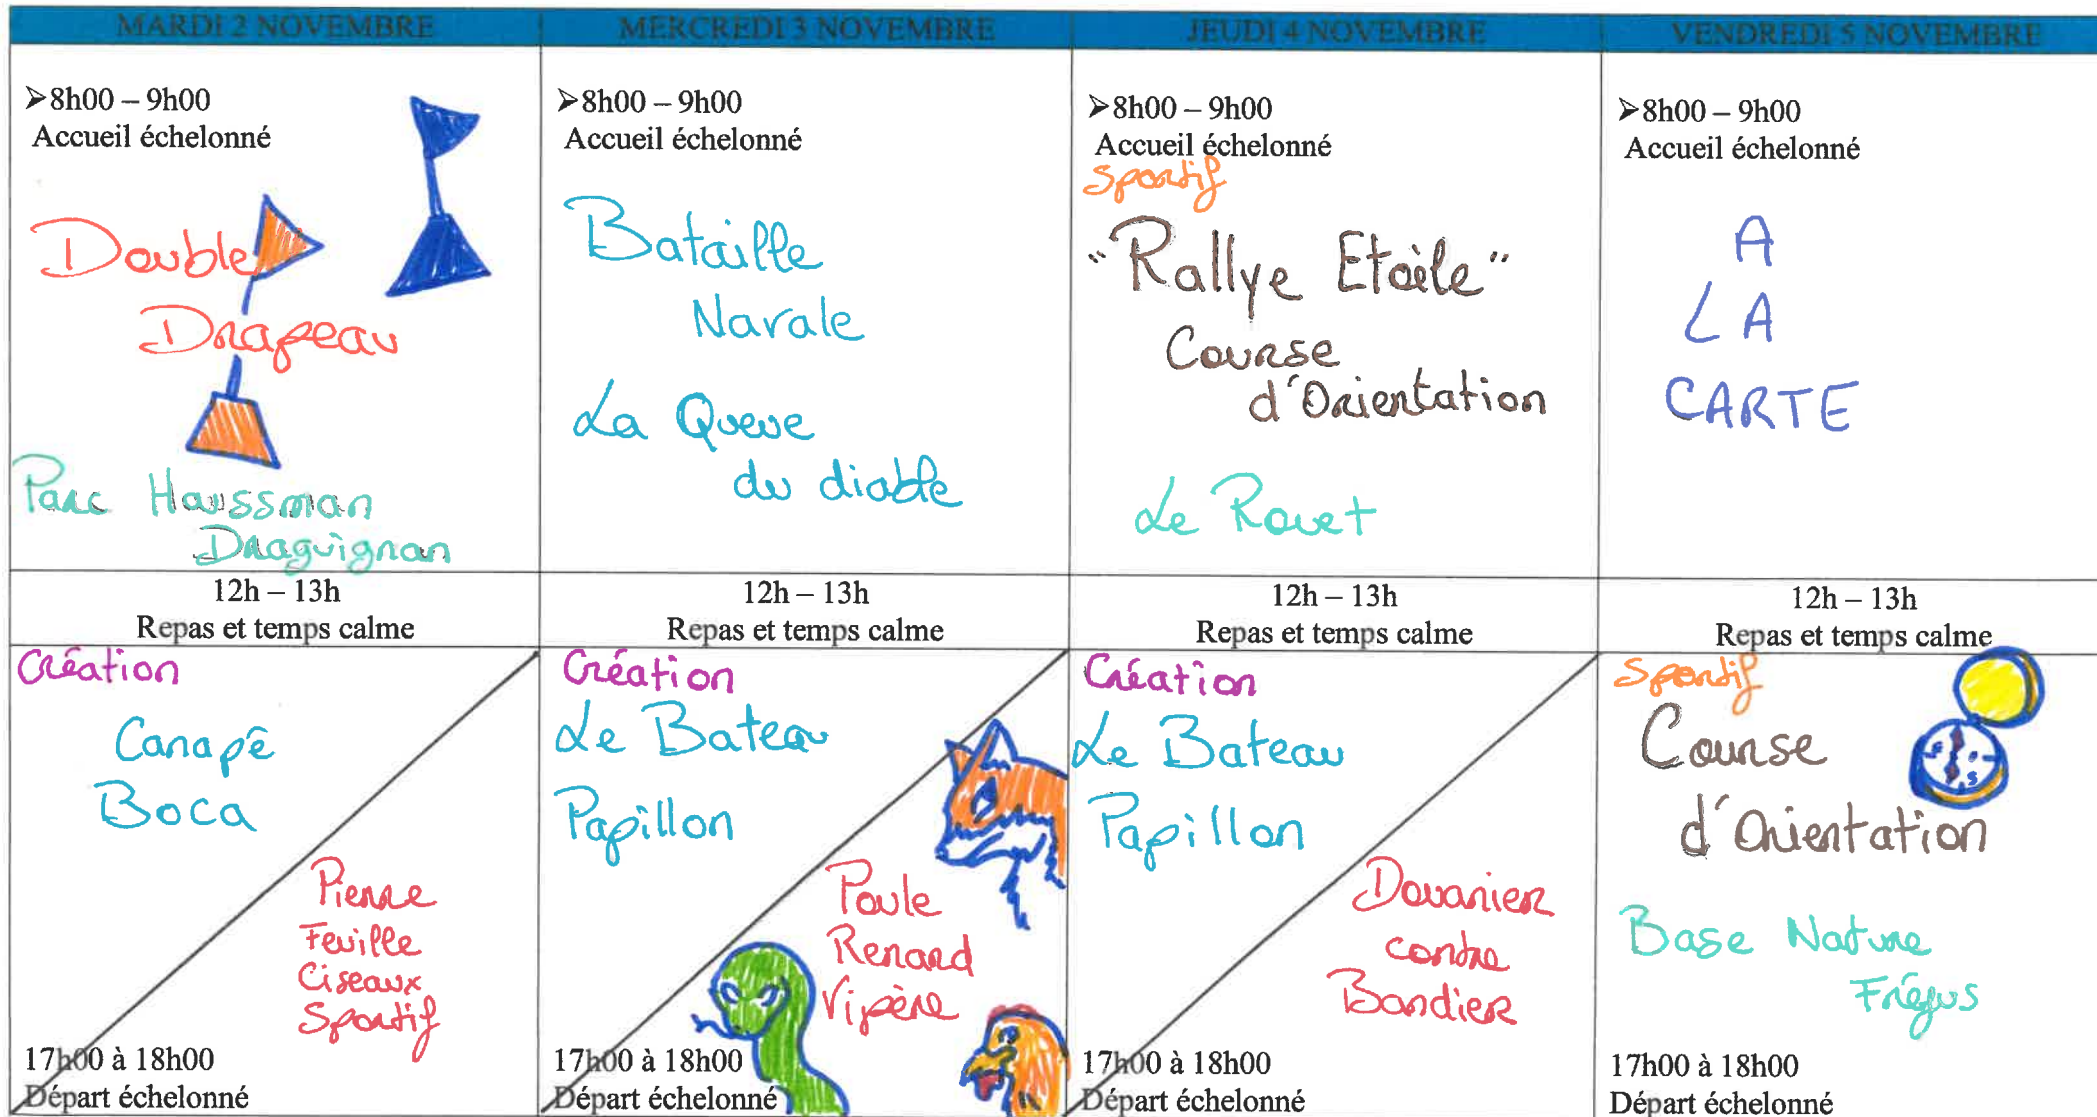 MARDI 2 NOVEMBRE
MERCREDI 3 NOVEMBRE
JEUDI 4 NOVEMBRE
VENDREDI 5 NOVEMBRE
➢8h00 – 9h00
Accueil échelonné
Double
Drapeau
Parc Haussman
Draguignan
➢8h00 – 9h00
Accueil échelonné
Bataille
Navale
La Queue
du diable
➢8h00 – 9h00
Accueil échelonné
Sportif
"Rallye Etoile"
Course
d'Orientation
Le Rouet
➢8h00 – 9h00
Accueil échelonné
A
LA
CARTE
12h – 13h
Repas et temps calme
12h – 13h
Repas et temps calme
12h – 13h
Repas et temps calme
12h – 13h
Repas et temps calme
Création
Canapé
Boca
Pierre
Feuille
Ciseaux
Sportif
17h00 à 18h00
Départ échelonné
Création
Le Bateau
Papillon
Poule
Renard
Vipère
17h00 à 18h00
Départ échelonné
Création
Le Bateau
Papillon
Douanier
contre
Bandier
17h00 à 18h00
Départ échelonné
Sportif
Course
d'Orientation
Base Nature
Fréjus
17h00 à 18h00
Départ échelonné